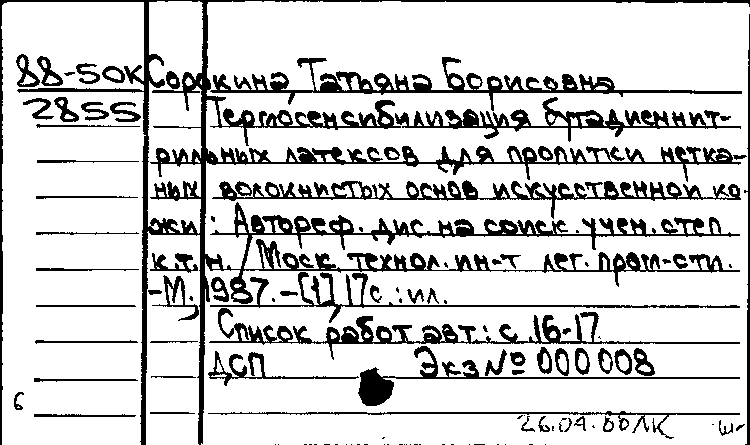 88-50К Сорокина, Татьяна Борисовна.
2855 Термосенсибилизация бутадиеннит-
рильных латексов для пропитки нетка-
ных волокнистых основ искусственной ко-
жи : Автореф. дис. на соиск. учен. степ.
к.т.н. / Моск. технол. ин-т лег. пром-сти.
-М., 1987. -[1], 17с. : ил.
Список работ авт.: с. 16-17
ДСП Экз № 000008
6
26.04.88 ЛК